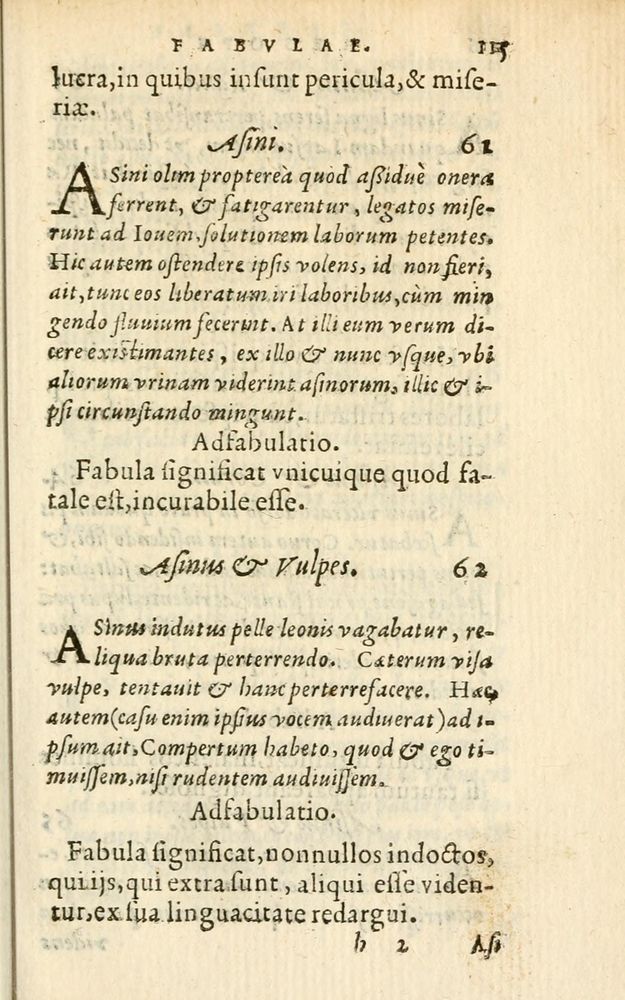 FABVLAE. 115
lucra, in quibus insunt pericula, & mise-
riæ.
Asini. 61
ASini olim propterea quod aßiduè onera
ferrent, & fatigarentur, legatos mise-
runt ad Iouem, solutionem laborum petentes.
Hic autem ostendere ipsis volens, id non fieri,
ait, tunc eos liberatum iri laboribus, cùm min
gendo fluuium fecerint. At illi eum verum di-
cere existimantes, ex illo & nunc vsque, vbi
aliorum vrinam viderint asinorum, illic & i-
psi circunstando mingunt.
Adfabulatio.
Fabula significat vnicuique quod fa-
tale est, incurabile esse.
Asinus & Vulpes. 62
ASinus indutus pelle leonis vagabatur, re-
liqua bruta perterrendo. Cæterum visa
vulpe, tentauit & hanc perterrefacere. Hæc
autem (casu enim ipsius vocem audiuerat) ad i-
psum ait, Compertum habeto, quod & ego ti-
muissem, nisi rudentem audiuissem.
Adfabulatio.
Fabula significat, nonnullos indoctos,
qui ijs, qui extra sunt, aliqui esse viden-
tur, ex sua linguacitate redargui.
h 2 Asi